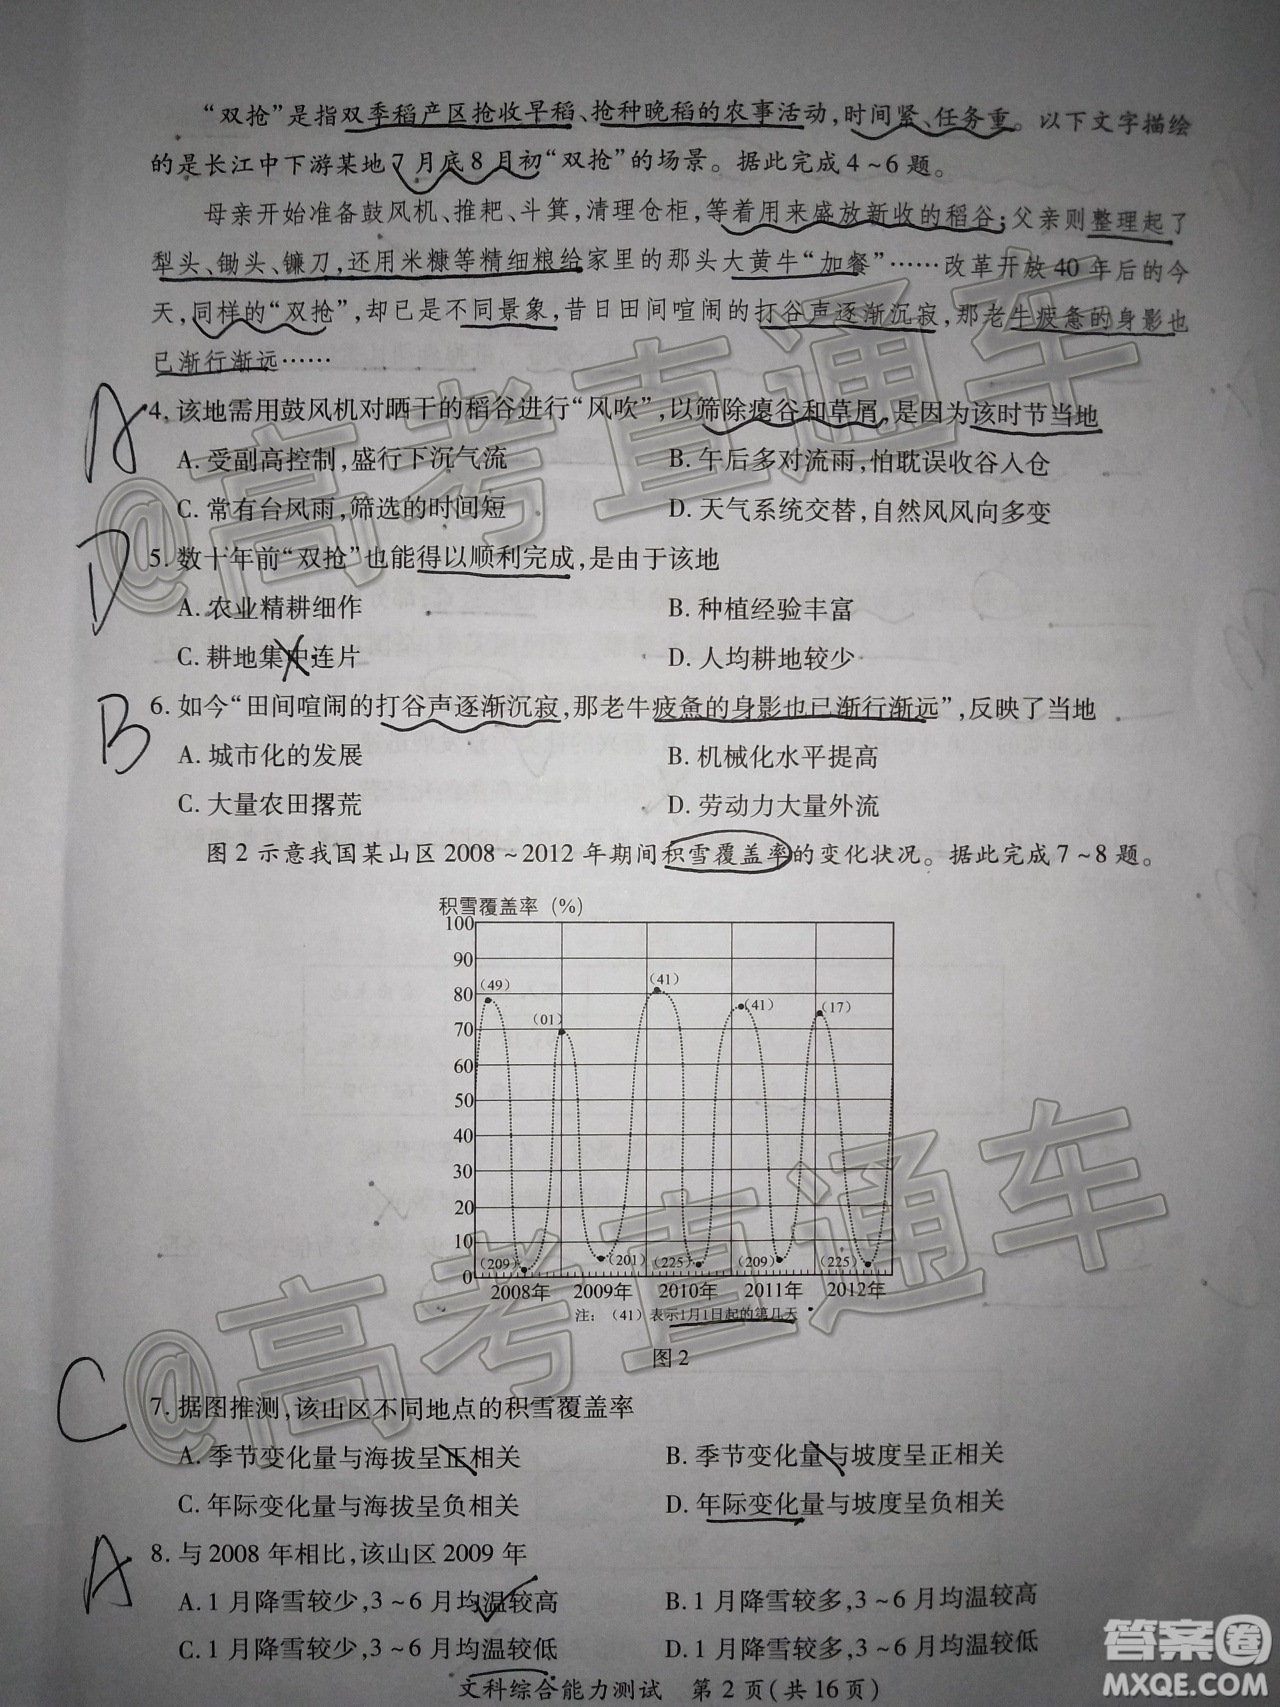 “双抢”是指双季稻产区抢收早稻、抢种晚稻的农事活动,时间紧、任务重。以下文字描绘
的是长江中下游某地7月底8月初“双抢”的场景。据此完成4~6题。
母亲开始准备鼓风机、推耙、斗箕,清理仓柜,等着用来盛放新收的稻谷;父亲则整理起了
犁头、锄头、镰刀,还用米糠等精细粮给家里的那头大黄牛“加餐”……改革开放40年后的今
天,同样的“双抢”,却已是不同景象,昔日田间喧闹的打谷声逐渐沉寂,那老牛疲惫的身影也
已渐行渐远……
A
4. 该地需用鼓风机对晒干的稻谷进行“风吹”,以筛除瘪谷和草屑,是因为该时节当地
A. 受副高控制,盛行下沉气流
B. 午后多对流雨,怕耽误收谷入仓
C. 常有台风雨,筛选的时间短
D. 天气系统交替,自然风风向多变
D
5. 数十年前“双抢”也能得以顺利完成,是由于该地
A. 农业精耕细作
B. 种植经验丰富
C. 耕地集中连片
D. 人均耕地较少
B
6. 如今“田间喧闹的打谷声逐渐沉寂,那老牛疲惫的身影也已渐行渐远”,反映了当地
A. 城市化的发展
B. 机械化水平提高
C. 大量农田撂荒
D. 劳动力大量外流
图2示意我国某山区2008~2012年期间积雪覆盖率的变化状况。据此完成7~8题。
积雪覆盖率(%)
100
90
80
70
60
50
40
30
20
10
0
(49)
(01)
(41)
(41)
(17)
(209)
(201)
(225)
(209)
(225)
2008年 2009年 2010年 2011年 2012年
注:(41)表示1月1日起的第几天
图2
C
7. 据图推测,该山区不同地点的积雪覆盖率
A. 季节变化量与海拔呈正相关
B. 季节变化量与坡度呈正相关
C. 年际变化量与海拔呈负相关
D. 年际变化量与坡度呈负相关
A
8. 与2008年相比,该山区2009年
A. 1月降雪较少,3~6月均温较高
B. 1月降雪较多,3~6月均温较高
C. 1月降雪较少,3~6月均温较低
D. 1月降雪较多,3~6月均温较低
文科综合能力测试 第2页(共16页)
@高考直通车
@高考直通车
答案圈
MXQE.COM